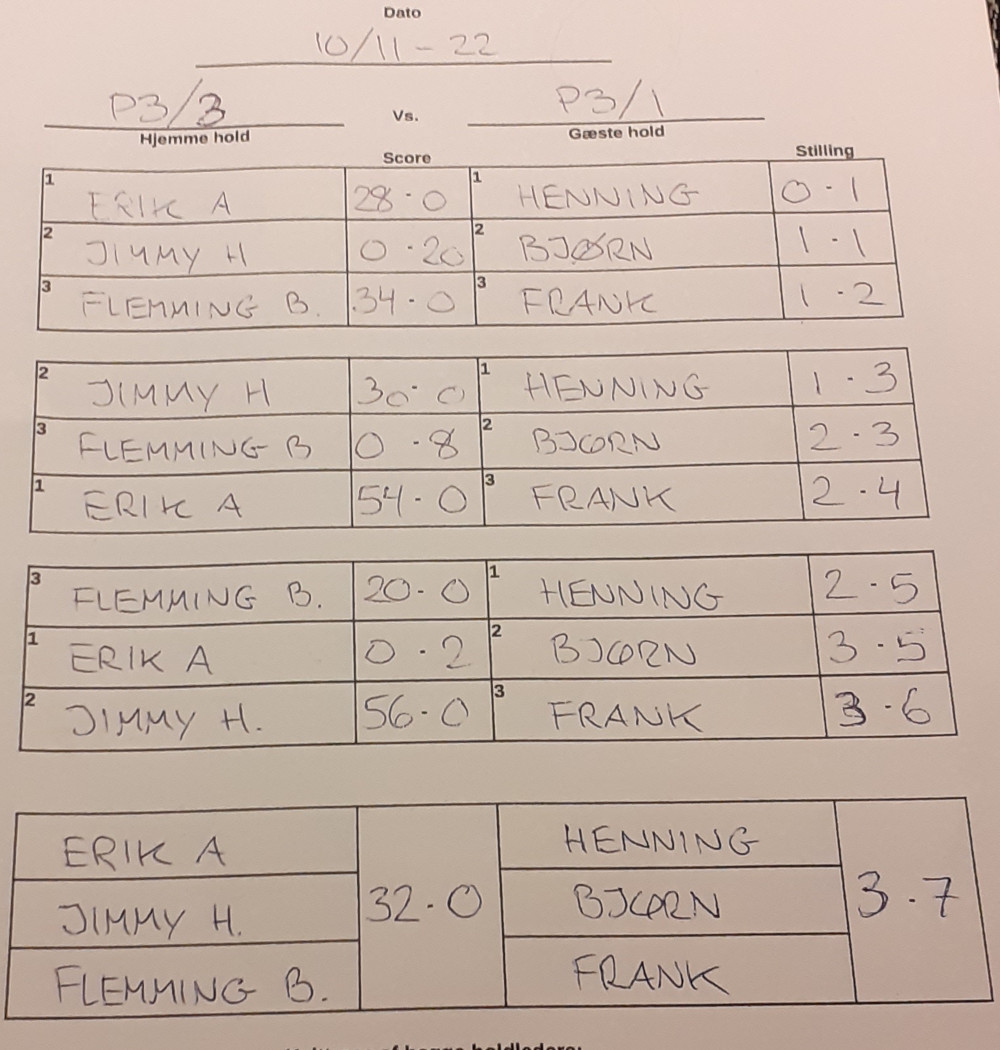 Dato
10/11-22
P3/3 Vs. P3/1
Hjemme hold Gæste hold
Score Stilling
1 ERIK A 28-0 1 HENNING 0-1
2 JIMMY H 0-20 2 BJØRN 1-1
3 FLEMMING B. 34-0 3 FRANK 1-2
2 JIMMY H 30-0 1 HENNING 1-3
3 FLEMMING B 0-8 2 BJØRN 2-3
1 ERIK A 54-0 3 FRANK 2-4
3 FLEMMING B. 20-0 1 HENNING 2-5
1 ERIK A 0-2 2 BJØRN 3-5
2 JIMMY H. 56-0 3 FRANK 3-6
ERIK A HENNING
JIMMY H. 32-0 BJØRN 3-7
FLEMMING B. FRANK